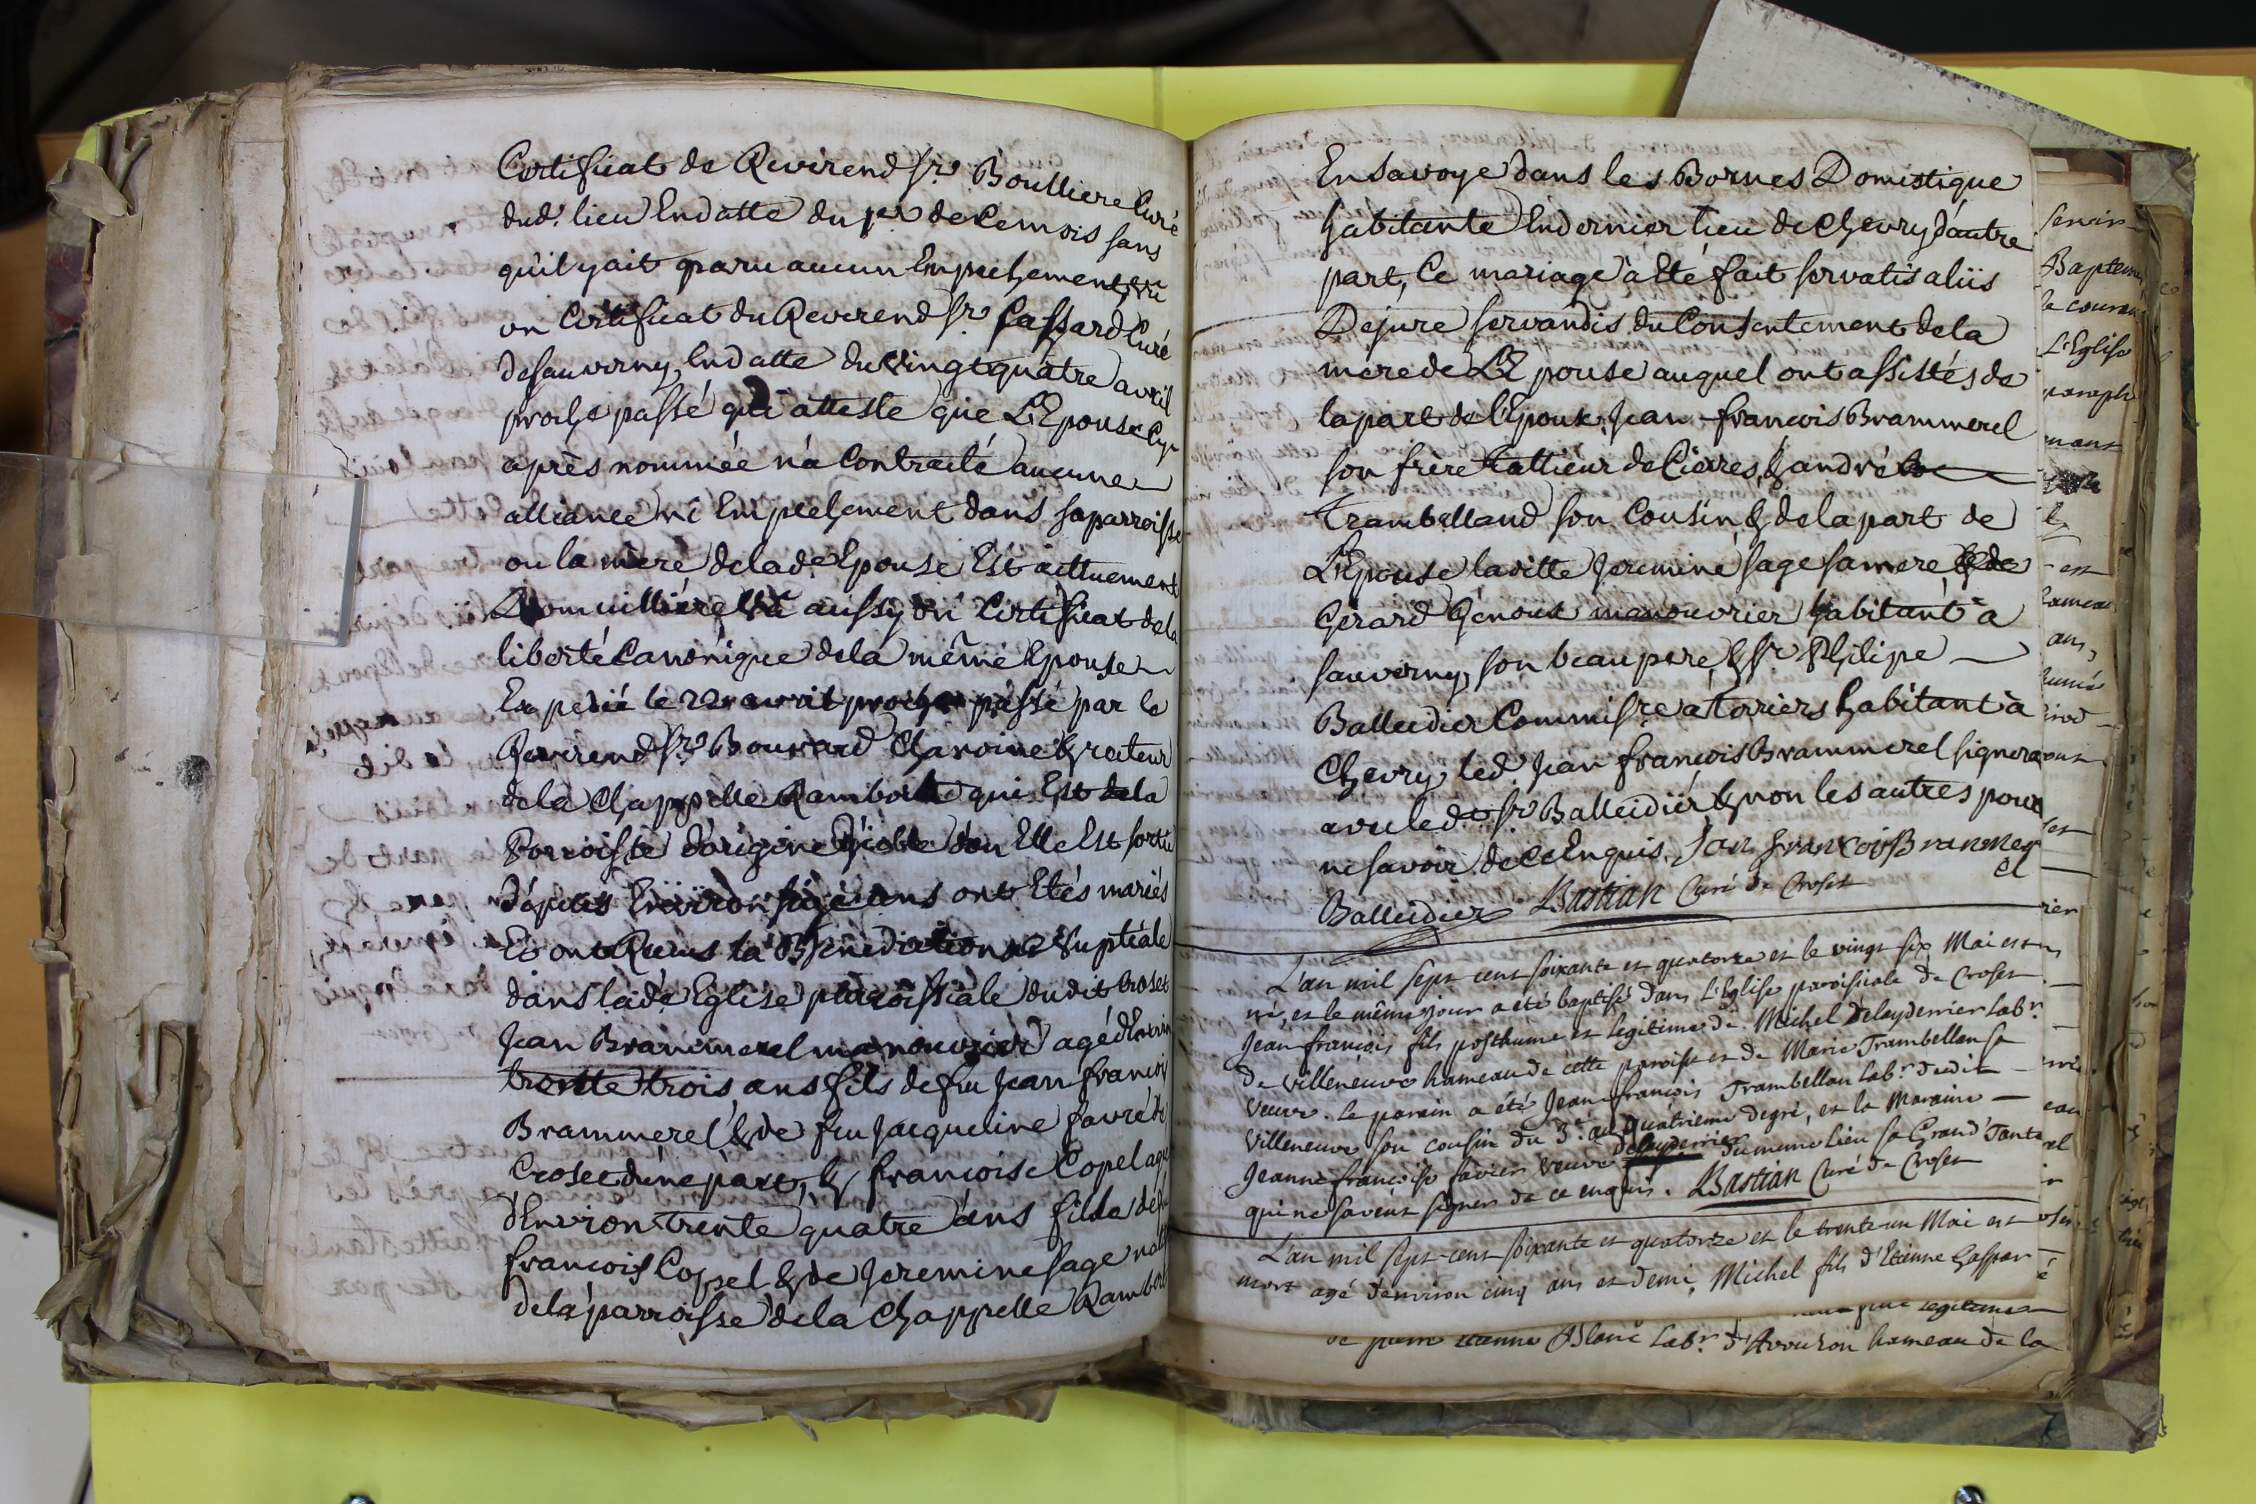 Certificat de Reverend Sr. Boulliere Curé
dud. lieu En datte du 1er de ce mois sans
qu'il y ait paru aucun Empechement, vû
un Certificat du Reverend Sr. Cassard Curé
de sauverny, En datte du vingt quatre avril
proche passé qui atteste que L'Epouse Cy
après nommée n'a Contracté aucune
alliance ni Empechement dans sa parroisse
ou la mere de la de Epouse Est actuement
Domicilliere, vû aussy un Certificat de la
liberté Canonique de la même Epouse
Expedié le 22 avril proche passé par le
Reverend Sr. Bouvard Chanoine & recteur
de la Chappelle Rambord qui Est de la
Parroisse d'origine d'ou Elle Est sortie
depuis Environ ans ont Etés mariés
Et ont Recus la Benediction Nuptiale
dans la de Eglise parroissiale du dit Croset
Jean Brammerel manouvrier agé d'Environ
trente trois ans fils de feu Jean francois
Brammerel & de feu Jacqueline favre de
Croset d'une part, & francoise Copel agée
d'Environ trente quatre ans fille de
francois Coppel & de Jeremine sage
de la parroisse de la Chappelle Rambord
En Savoye dans les Bornes Domestique
habitante En dernier lieu de Chevry d'autre
part, Ce mariage a Eté fait servatis aliis
De jure servandis du Consentement de la
mere de L'Epouse auquel ont assistés de
la part de l'Epoux Jean-francois Brammerel
son frère tallieur de Pierres, & andré
Trambelland son Cousin & de la part de
L'Epouse la ditte Jeremine sage sa mere
Gerard Genoux manouvrier habitant a
sauverny, son beau pere, & Sr. Philipe
Balleidier Commissre a Terriers habitant à
Chevry, led Jean francois Brammerel signera
avec led.t Sr. Balleidier & non les autres pour
ne savoir de ce Enquis. Jan francois Branmer
el
Balleidier Bastian Curé de Croset
L'an mil sept cent soixante et quatorze et le vingt six Mai est
né, et le même jour a été baptisé dans L'Eglise paroissiale de Croset
Jean francois fils posthume et legitime de Michel Delayderrier Labr.
de Villeneuve hameau de cette paroisse et de Marie Trambellan sa
veuve. le parain a été Jean francois Trambellan Labr. dudit
Villeneuve son cousin du 3e. au quatrieme degré, et la Maraine
Jeanne francoise favier veuve delayderrier du meme lieu sa Grand'Tante
qui ne savent signer de ce enquis. Bastian Curé de Croset
L'an mil sept-cent soixante et quatorze et le trente un Mai est
mort agé d'environ cinq ans et demi, Michel fils d'Etienne Gaspar
legitime
de pierre Etienne Blanc Labr. d'Avouzon hameau de la
servir
Bapteme
L'Eglise